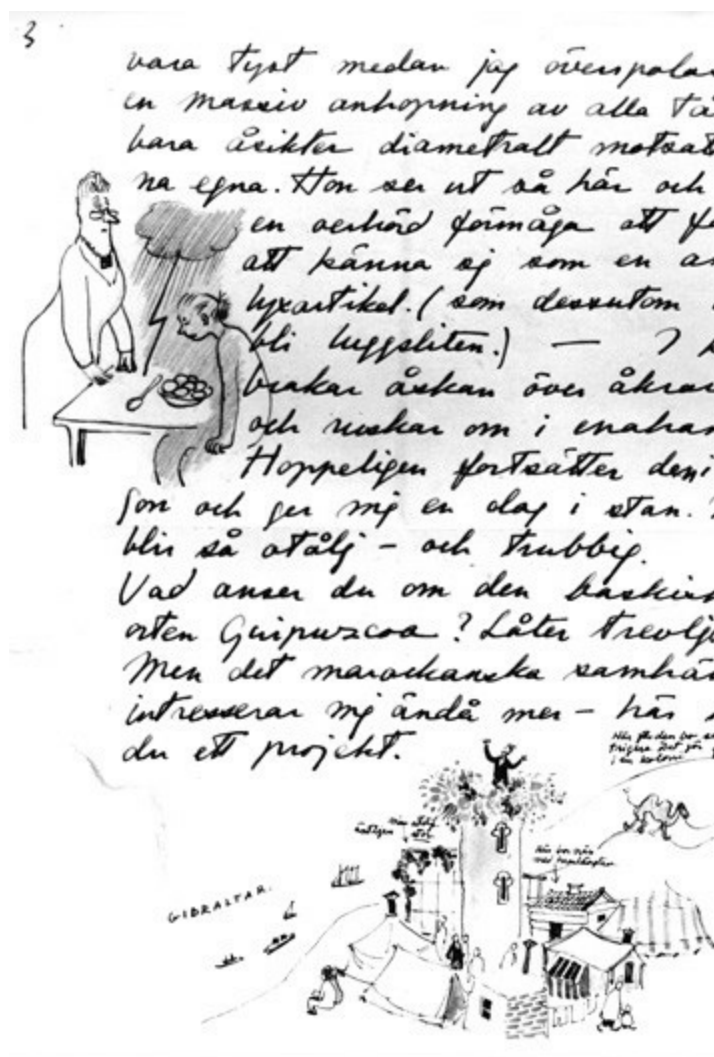 3
vara tyst medan jag överspolar
en massiv anhopning av alla tä
bara åsikter diametralt motsat
na egna. Hon ser ut så här och
en oerhörd förmåga att f
att känna sig som en a
lyxartikel. (som dessutom
bli luggsliten.) —
brakar åskan över åkrar
och ruskar om i enahan
Hoppeligen fortsätter den i
gon och ger mig en dag i stan.
blir så otålig – och trubbig.
Vad anser du om den baskis
orten Guipuzcoa? Låter trevlig
Men det marockanska samhäl
intresserar mig ändå mer – här
du ett projekt.
Här
i en koloni
GIBRALTAR.
Här bor